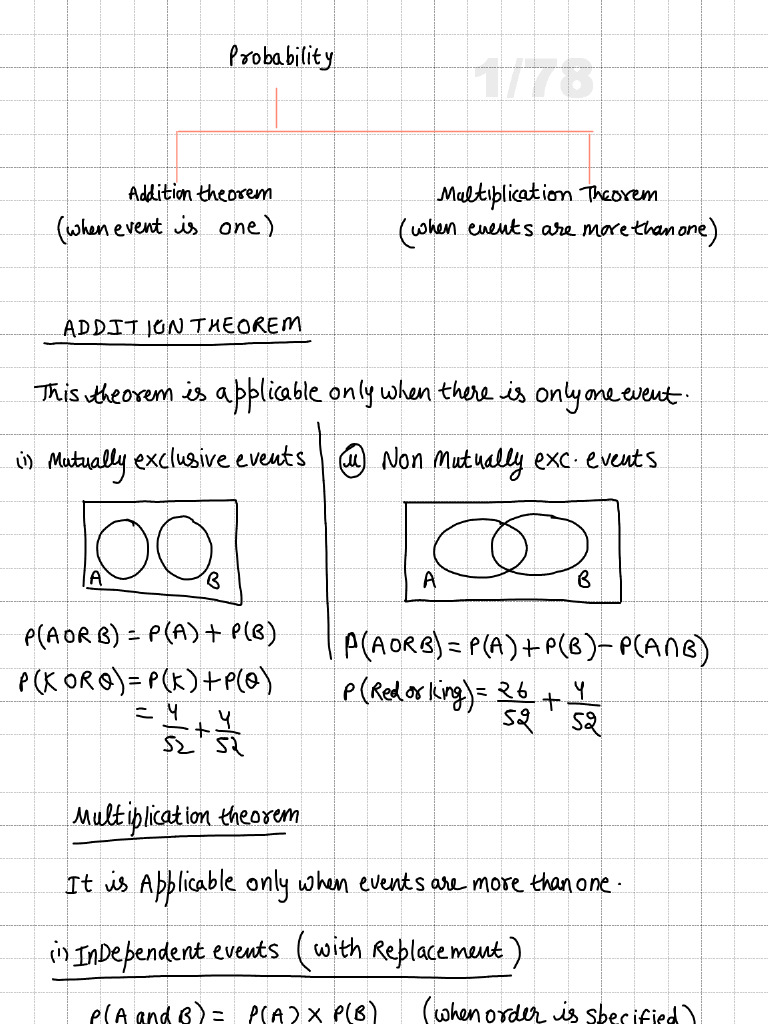 Probability
1/78
Addition theorem
(when event is one)
Multiplication Theorem
(when events are more than one)
ADDITION THEOREM
This theorem is applicable only when there is only one event.
(i) Mutually exclusive events
A B
P(A OR B) = P(A) + P(B)
P(K OR Q) = P(K) + P(Q)
= 4/52 + 4/52
(ii) Non Mutually exc. events
A B
P(A OR B) = P(A) + P(B) - P(A∩B)
P(Red or king) = 26/52 + 4/52
Multiplication theorem
It is Applicable only when events are more than one.
(i) InDependent events (with Replacement)
P(A and B) = P(A) X P(B) (when order is specified)